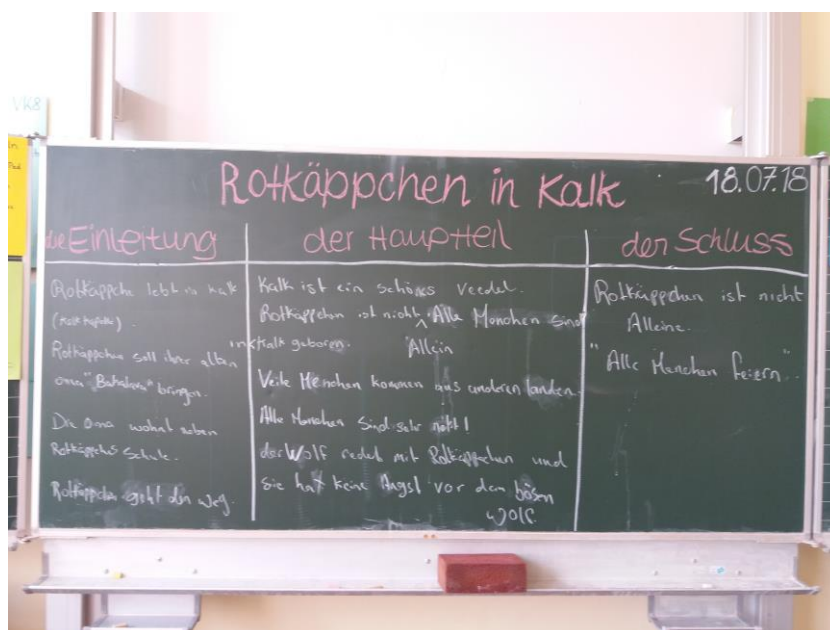 VK8
Rotkäppchen in Kalk
18.07.18
die Einleitung
Rotkäppche lebt in Kalk
(Kalk Kapelle).
Rotkäppchen soll ihrer alten
oma " " bringen.
Die Oma wohnt neben
Rotkäppches Schule.
Rotkäppchen geht den Weg.
der Hauptteil
Kalk ist ein schönes Veedel.
Rotkäppchen ist nicht Allein. Alle Menschen sind
in Kalk geboren.
Veile Menschen kommen aus anderen landen.
Alle Menschen sind sehr nett!
der Wolf redet mit Rotkäppchen und
sie hat keine Angst vor dem bösen
Wolf.
der Schluss
Rotkäppchen ist nicht
Alleine.
"Alle Menschen feiern".